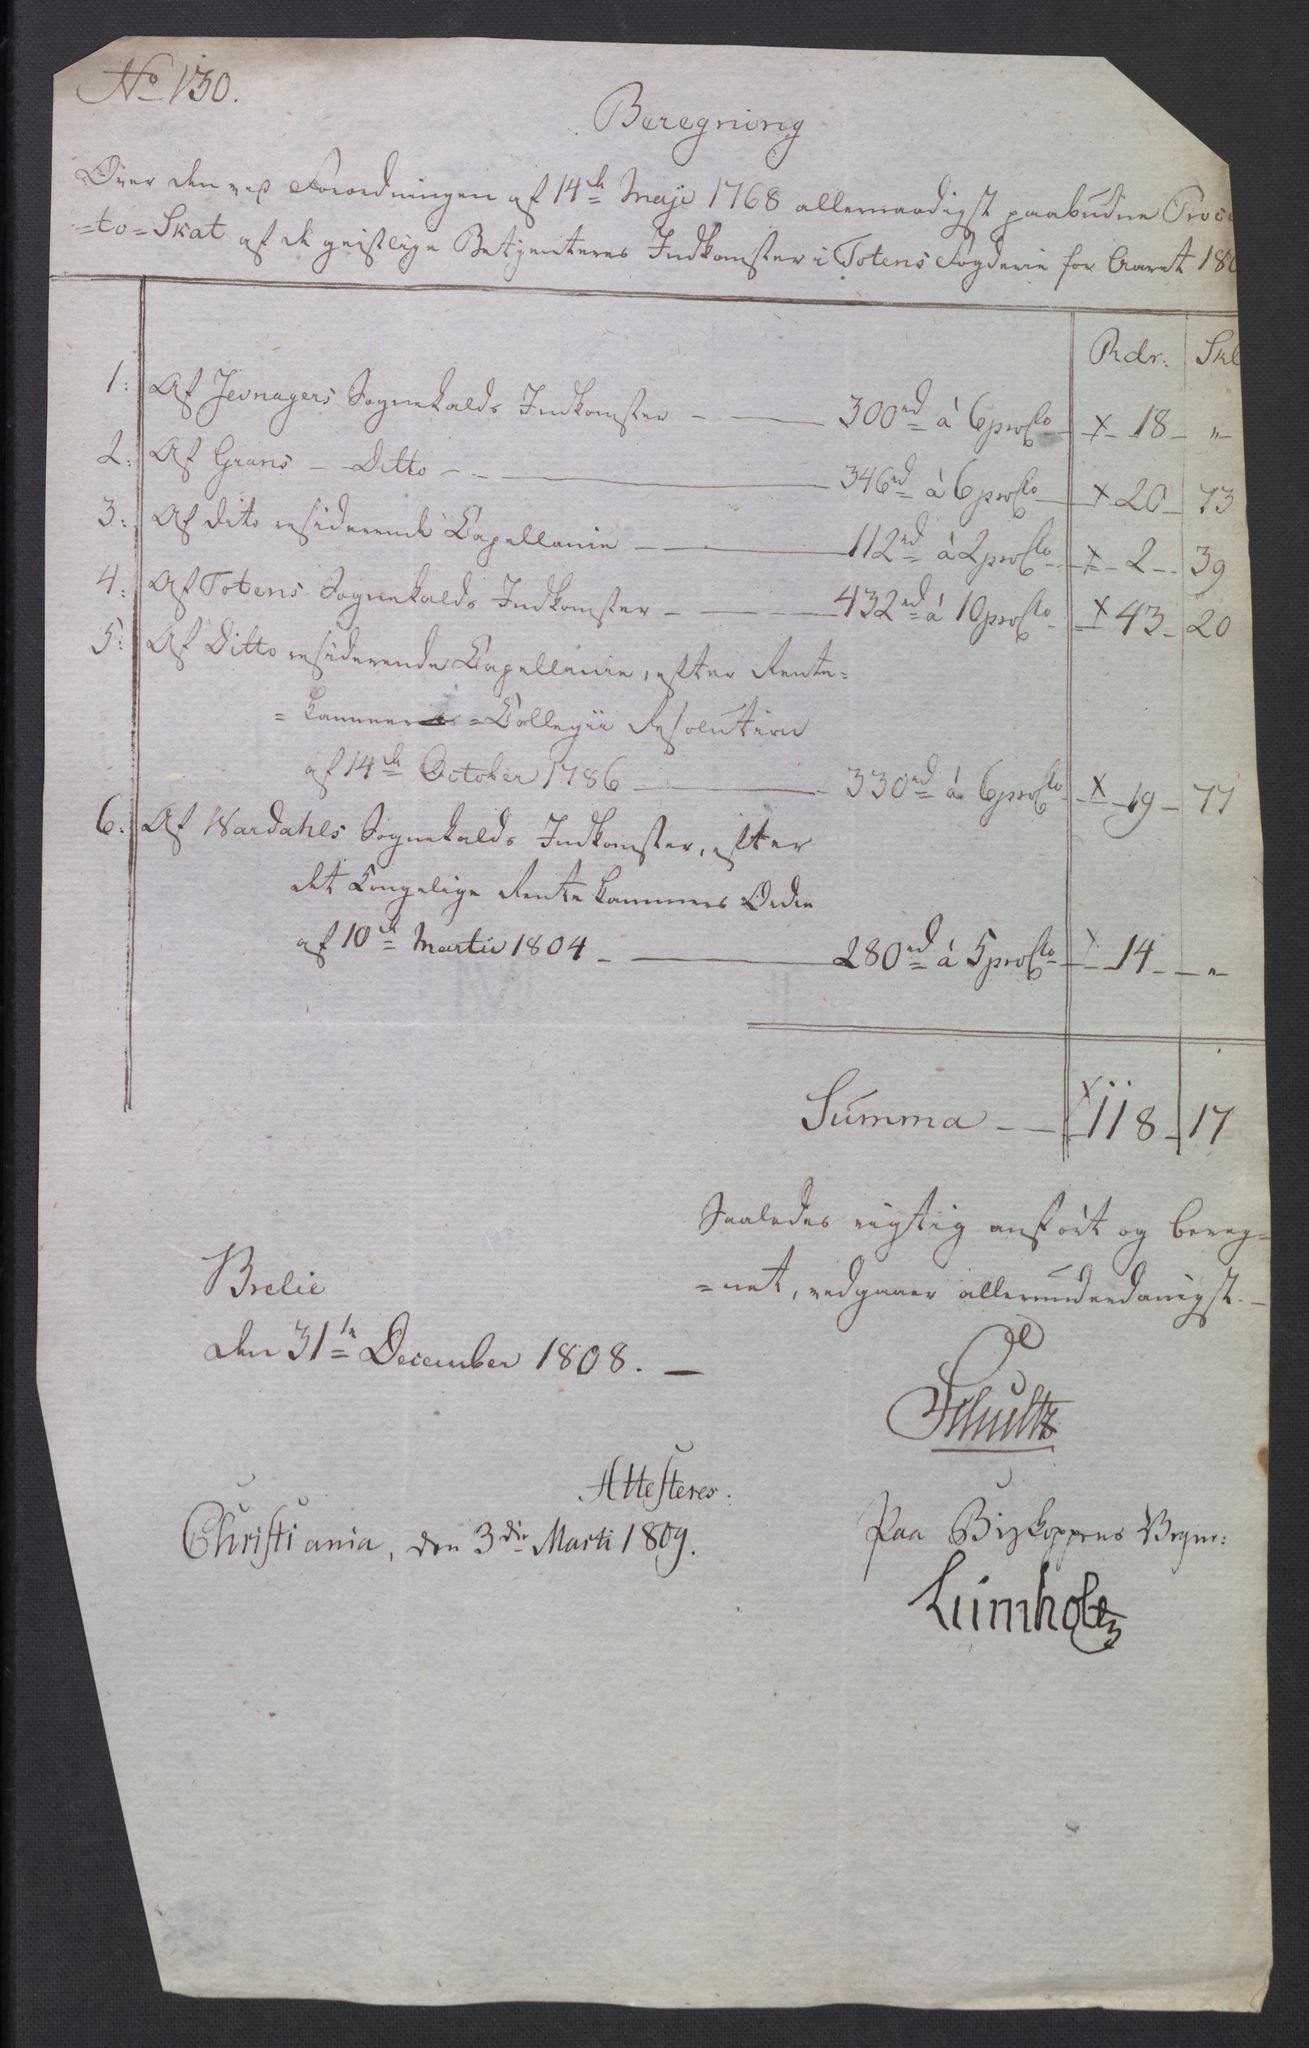 No 130.
Beregning
Over den ved Forordningen af 14de Maji 1768 allernaadigst paabudne Proce
=to=Skat af de geistlige Betjenteres Indkomster i Totens Fogderie for Aaret 180
Rdr. Skl
1: Af Jevnagers Sognekalds Indkomster — — 300rd à 6 proCto — 18 — "
2: Af Grans — Ditto — — 346rd à 6 proCto — 20 — 73
3: Af dito residerende Capellanie — — 112rd à 2 proCto — 2 — 39
4: Af Totens Sognekalds Indkomster — — 432rd à 10 proCto — 43 — 20
5: Af Ditto residerende Capellanie, efter Rente=
=Kammer =Collegii Resolution
af 14de October 1786 — 330rd à 6 proCto — 19 — 77
6: Af Wardahls Sognekalds Indkomster, efter
det Kongelige Rentekammers Ordre
af 10de Martii 1804 — — 280rd à 5 proCto — 14 — "
Summa — — 118 — 17
Saaledes rigtig anført og bereg=
=net, vedgaaer allerunderdanigst. —
Brelie
den 31te December 1808. —
Schultz
Attesteres.
Christiania, den 3die Marti 1809.
Paa Biskoppens Vegne:
Lumholtz